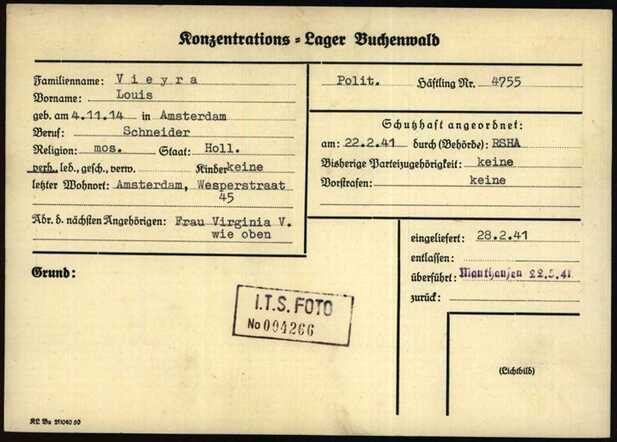 Konzentrations-Lager Buchenwald
Familienname: Vieyra
Vorname: Louis
geb. am 4.11.14 in Amsterdam
Beruf: Schneider
Religion: mos. Staat: Holl.
verh., led., gesch., verw. Kinder keine
letzter Wohnort: Amsterdam, Wesperstraat
45
Adr. d. nächsten Angehörigen: Frau Virginia V.
wie oben
Polit. Häftling Nr. 4755
Schutzhaft angeordnet:
am: 22.2.41 durch (Behörde): RSHA
Bisherige Parteizugehörigkeit: keine
Vorstrafen: keine
eingeliefert: 28.2.41
entlassen:
überführt: Mauthausen 22.5.41
zurück:
Grund:
I.T.S. FOTO
No 004266
(Lichtbild)